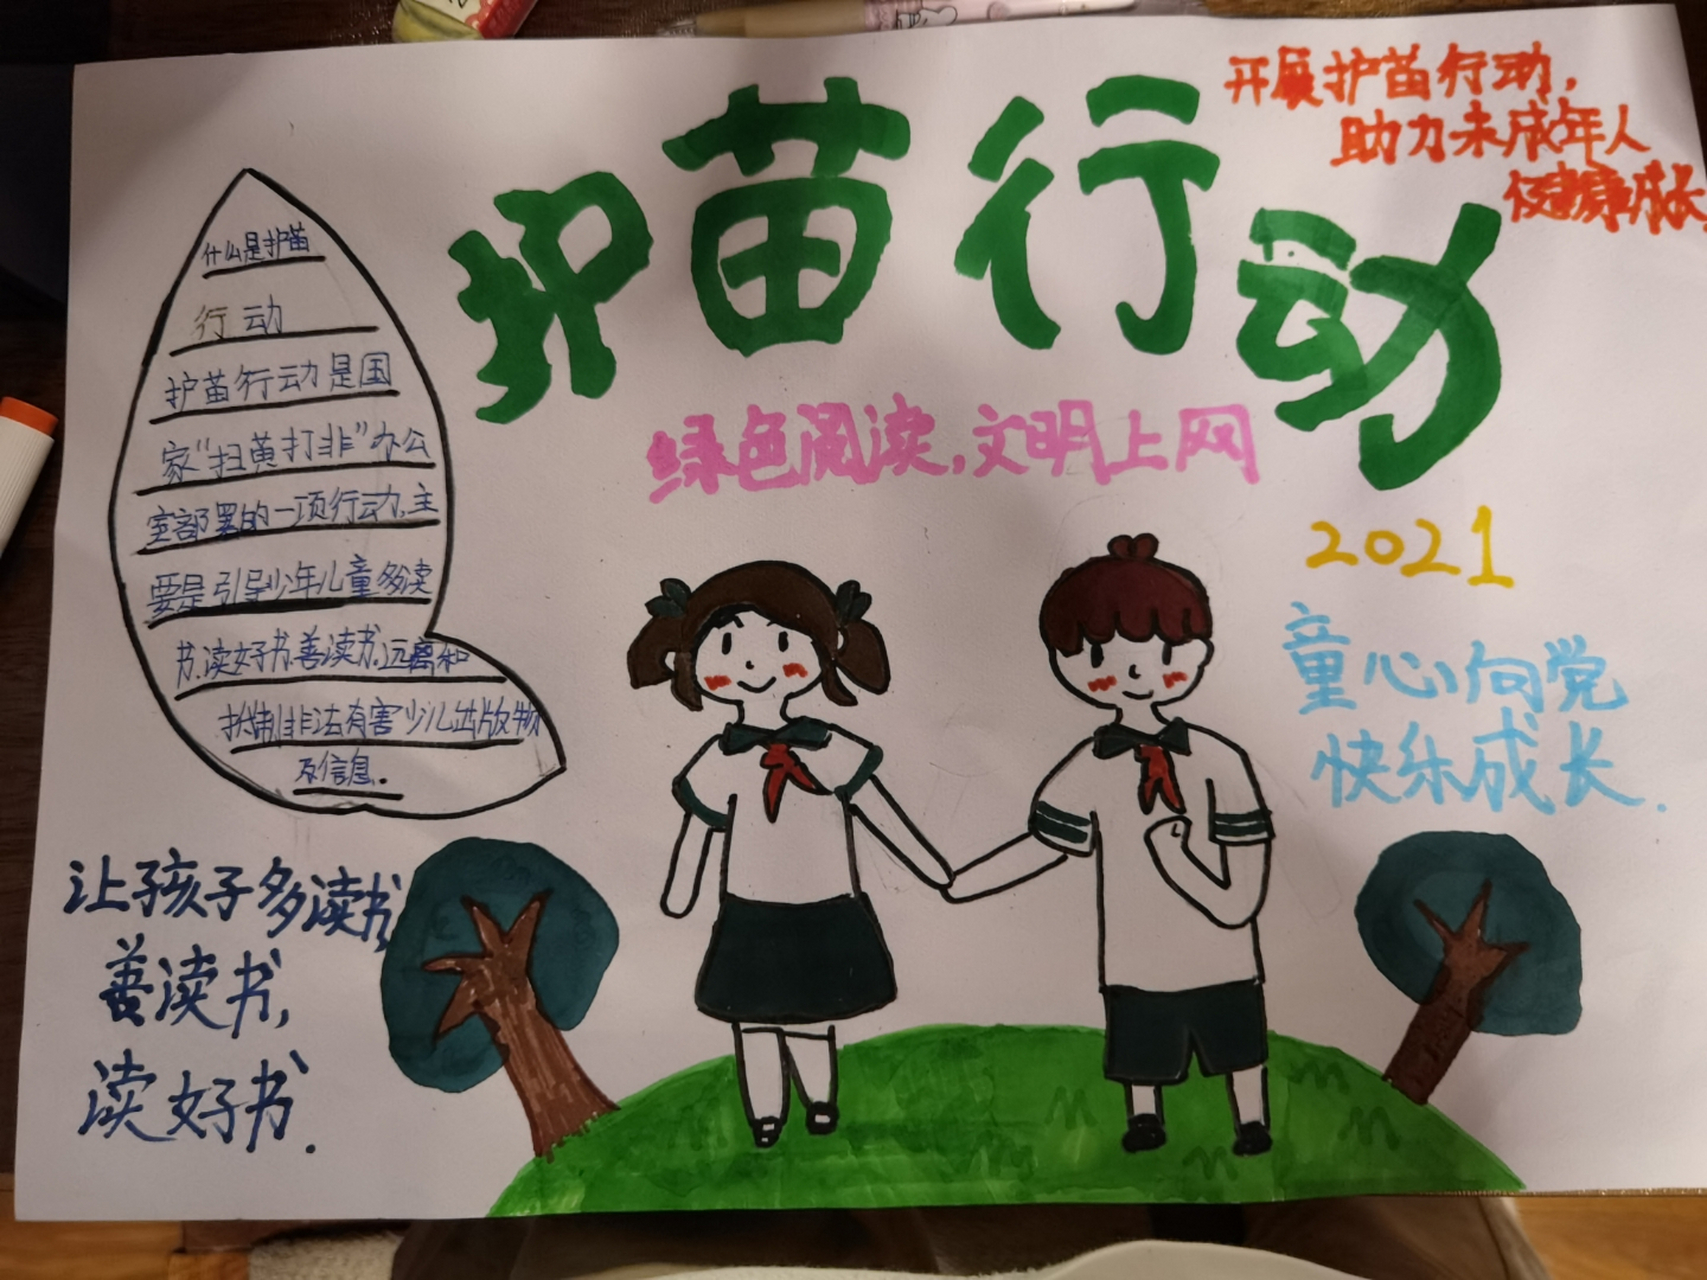 护苗行动
开展护苗行动，
助力未成年人
健康成长
绿色阅读,文明上网
2021
童心向党
快乐成长.
什么是护苗
行动
护苗行动是国
家“扫黄打非”办公
室部署的一项行动,主
要是引导少年儿童多读
书.读好书.善读书.远离和
抵制非法有害少儿出版物
及信息.
让孩子多读书,
善读书,
读好书.